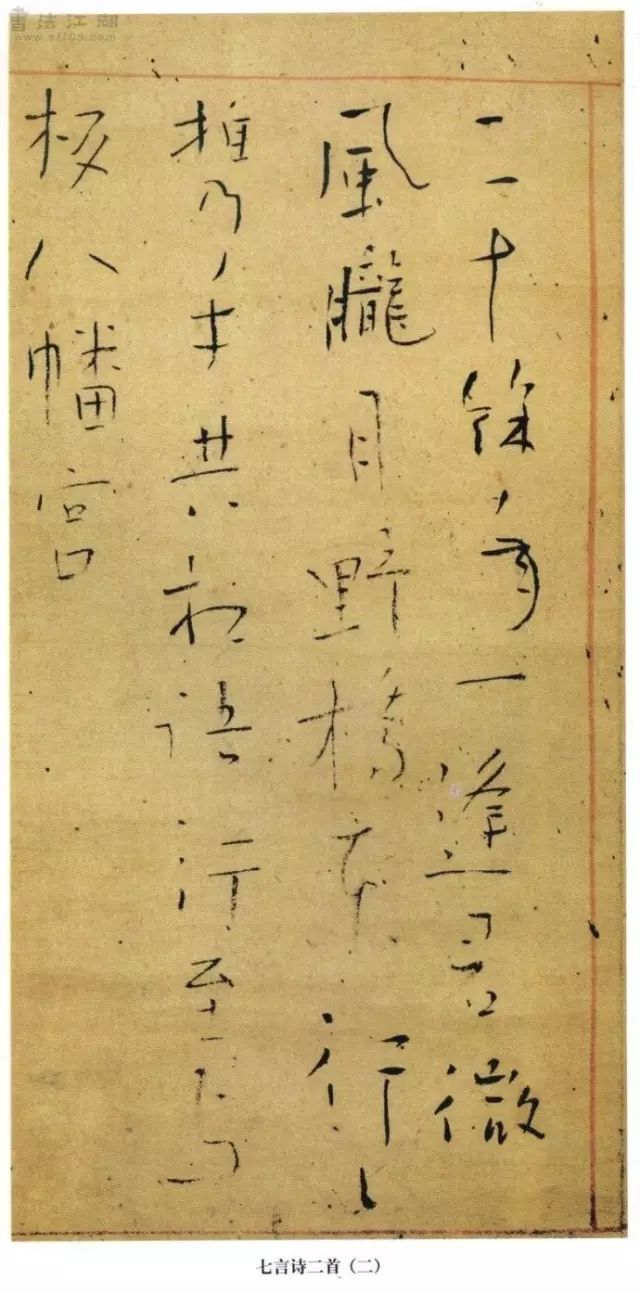 書法江湖
www.sf108.com
二十餘年一逢君微
風朧月野橋東行〻
携手共相語行至与
板八幡宮
七言诗二首（二）